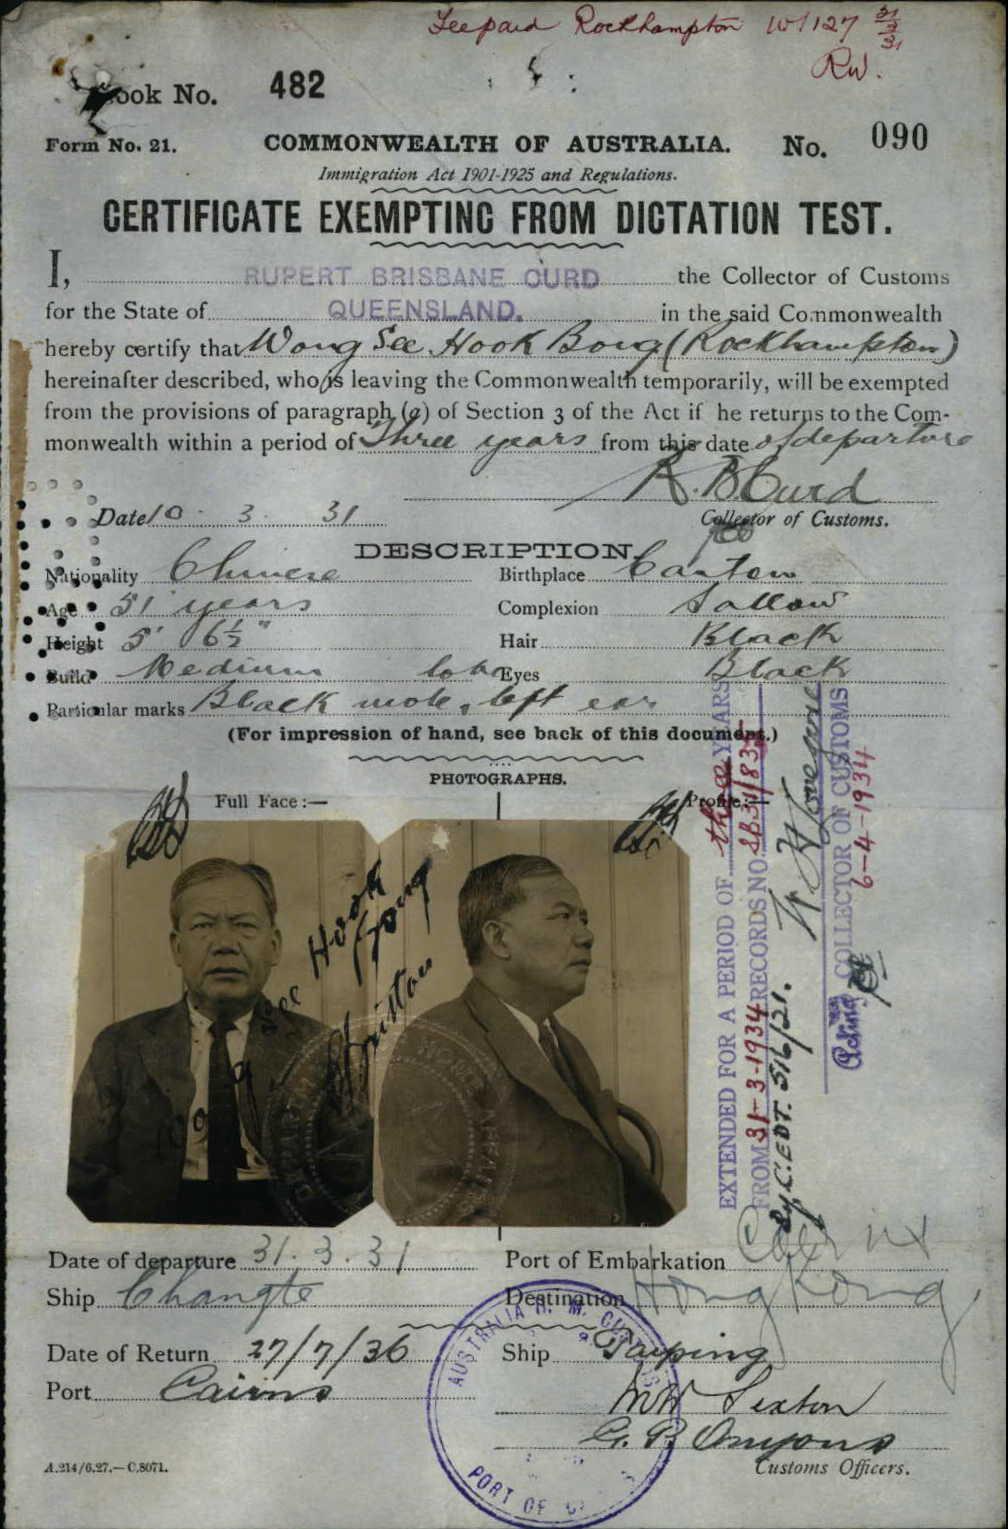 Rockhampton W/127 21/3/31
RW.
Book No. 482
Form No. 21. COMMONWEALTH OF AUSTRALIA. No. 090
Immigration Act 1901-1925 and Regulations.
CERTIFICATE EXEMPTING FROM DICTATION TEST.
I, RUPERT BRISBANE CURD the Collector of Customs
for the State of QUEENSLAND. in the said Commonwealth
hereby certify that Wong See Hook Bong (Rockhampton)
hereinafter described, who is leaving the Commonwealth temporarily, will be exempted
from the provisions of paragraph (a) of Section 3 of the Act if he returns to the Com-
monwealth within a period of Three years from this date of departure
R. B. Curd
Date 10. 3. 31 Collector of Customs.
DESCRIPTION
Nationality Chinese Birthplace Canton
Age 51 years Complexion Sallow
Height 5' 6½" Hair Black
Build Medium Eyes Black
Particular marks Black mole, left ear
(For impression of hand, see back of this document.)
PHOTOGRAPHS.
Full Face:— Profile:—
See Hook
EXTENDED FOR A PERIOD OF three YEARS
FROM 31-3-1934 RECORDS NO.
By C.EDT. 516/21.
Acting COLLECTOR OF CUSTOMS
6-4-1934
Date of departure 31.3.31 Port of Embarkation Cairns
Ship Changte Destination Hong Kong.
Date of Return 27/7/36 Ship Taiping
Port Cairns
AUSTRALIA H. M. CUSTOMS
PORT OF
Customs Officers.
A.214/6.27.—C.8071.